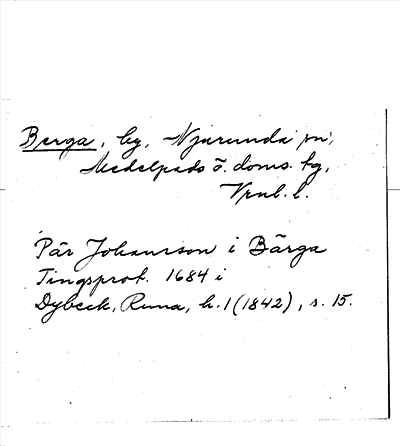 Berga, by, Njurunda sn,
Medelpads ö. doms. tg,
Vnl. l.
Pär Johansson i Bärga
Tingsprot. 1684 i
Dybeck, Runa, h. 1 (1842), s. 15.